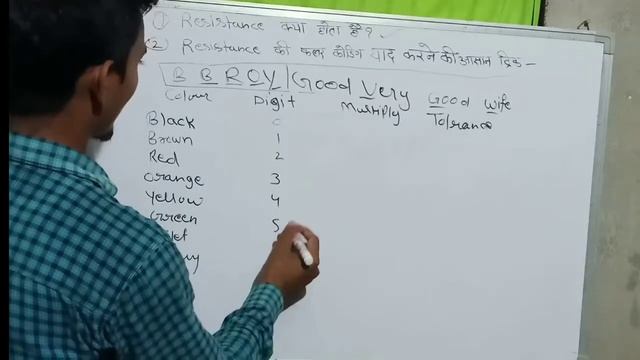 ① Resistance क्या होता है?
② Resistance की कलर कोडिंग याद करने की आसान ट्रिक -
B B R O Y Good Very Good Wife
Colour Digit Multiply Tolerance
Black 0
Brown 1
Red 2
Orange 3
Yellow 4
Green 5